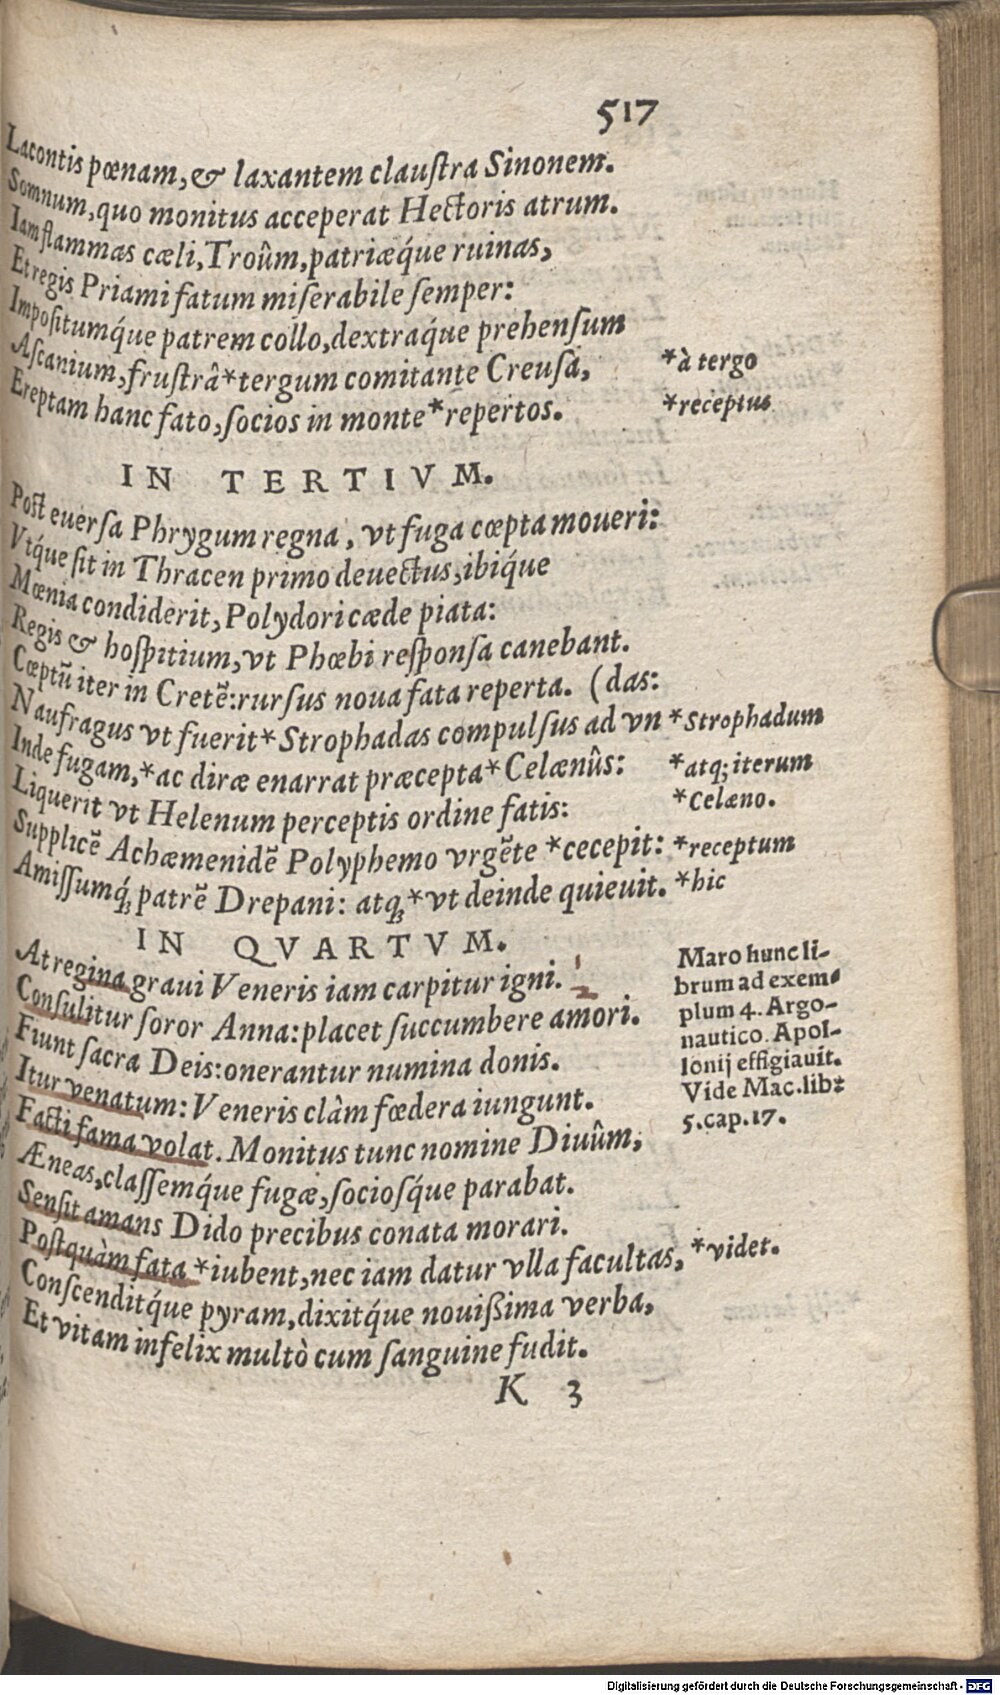 517
Lacontis pœnam, & laxantem claustra Sinonem.
Somnum, quo monitus acceperat Hectoris atrum.
Iam flammas cæli, Troûm, patriæq́ue ruinas,
Et regis Priami fatum miserabile semper:
Impositumq́ue patrem collo, dextraq́ue prehensum
Ascanium, frustrâ * tergum comitante Creusa, * à tergo
Ereptam hanc fato, socios in monte * repertos. * receptus
IN TERTIVM.
Post euersa Phrygum regna, vt fuga cœpta moueri:
Vtq́ue sit in Thracen primo deuectus, ibiq́ue
Mœnia condiderit, Polydori cæde piata:
Regis & hospitium, vt Phœbi responsa canebant.
Cœptũ iter in Cretẽ: rursus noua fata reperta. (das:
Naufragus vt fuerit * Strophadas compulsus ad vn * Strophadum
Inde fugam, * ac diræ enarrat præcepta * Celænûs: * atq; iterum
Liquerit vt Helenum perceptis ordine fatis: * Celæno.
Supplicẽ Achæmenidẽ Polyphemo vrgẽte * cecepit: * receptum
Amissumq́; patrẽ Drepani: atq; * vt deinde quieuit. * hic
IN QVARTVM.
At regina graui Veneris iam carpitur igni.
Consulitur soror Anna: placet succumbere amori.
Fiunt sacra Deis: onerantur numina donis.
Itur venatum: Veneris clàm fœdera iungunt.
Facti fama volat. Monitus tunc nomine Diuûm,
Æneas, classemq́ue fugæ, sociosq́ue parabat.
Sensit amans Dido precibus conata morari.
Postquàm fata * iubent, nec iam datur vlla facultas, * videt.
Conscenditq́ue pyram, dixitq́ue nouißima verba,
Et vitam infelix multò cum sanguine fudit.
Maro hunc li-
brum ad exem-
plum 4. Argo-
nautico. Apol-
lonij effigiauit.
Vide Mac. lib:
5. cap. 17.
K 3
Digitalisierung gefördert durch die Deutsche Forschungsgemeinschaft - DFG